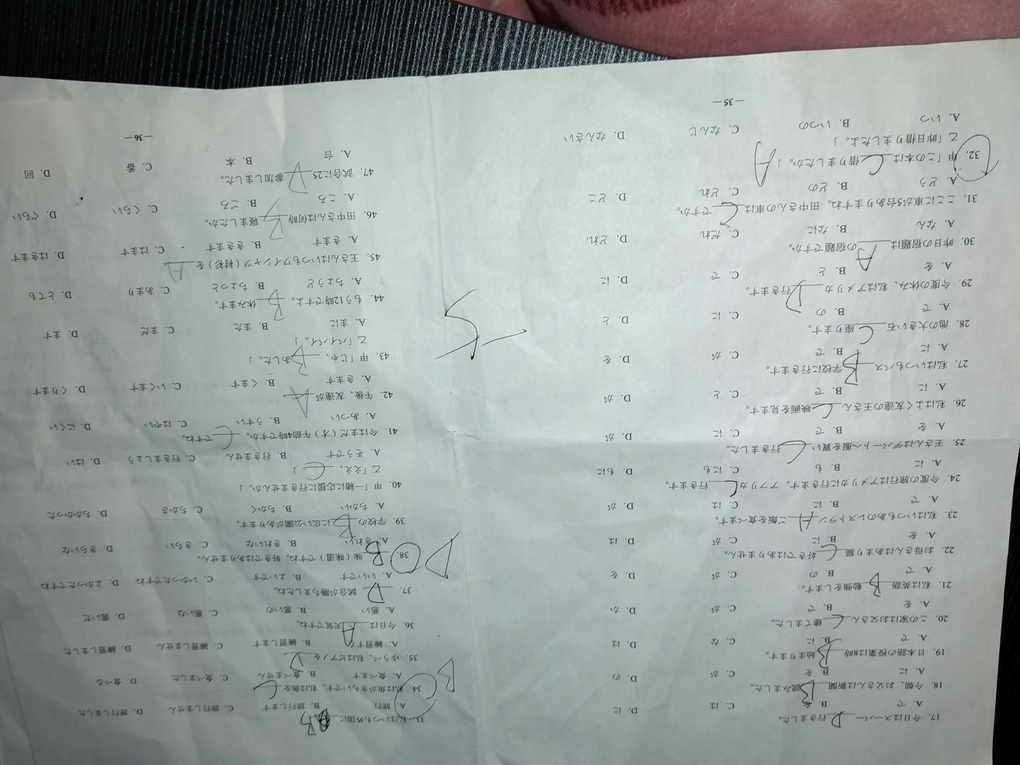 17. 今日はスーパー D 行きました。
A. で B. は C. は D. に
18. 今朝、お父さんは新聞 B 読みました。
A. に B. を C. が D. の
19. 日本語の授業は8時 B 始まります。
A. で B. に C. な D. は
20. この家はお父さん C 建てました。
A. を B. で C. が D. か
21. 私は英語 B 勉強をします。
A. で B. の C. が D. を
22. お母さんはあまり猫 C 好きではありません。
A. を B. に C. が D. は
23. 私はいつもあのレストラン A ご飯を食べます。
A. で B. に C. は D. が
24. 今度の旅行はアメリカに行きます。アフリカ C 行きます。
A. に B. も C. にも D. もに
25. 王さんはデパートへ服を買い C 行きました。
A. を B. で C. に D. が
26. 私はよく友達の王さん C 映画を見ます。
A. に B. で C. と D. が
27. 私はいつもバス B 学校に行きます。
A. に B. で C. が D. を
28. 池の大きい石 C 座ります。
A. で B. の C. に D. と
29. 今度の休み、私はアメリカ D 行きます。
A. を B. と C. で D. に
30. 昨日の宿題は A の宿題ですか。
A. なん B. なに C. だれ D. どれ
31. ここに車が5台ありますね。田中さんの車は C ですか。
A. どう B. どの C. どれ D. どこ
32. 甲「この本は C 借りましたか。」 A
乙「昨日借りましたよ。」
A. いつ B. いつの C. なんじ D. なんさい
—35—
5
33. 私はいつも外国に B
A. 旅行 B. 旅行します C. 旅行しません D. 旅行しました
34. 私は魚がきらいです。私は魚を C B
A. 食べます B. 食べません C. 食べました D. 食べる
35. ゆうべ、私はピアノを D
A. 練習する B. 練習します C. 練習しません D. 練習しました
36. 今日は A 天気ですね。
A. 悪い B. 悪いな C. 悪いの D. 悪いだ
37. 試合が勝ちましたね。 D
A. いいです B. よいです C. よかったですね D. よかったですね
38. 味(味道)ですね。好きではありません。 B D
A. きれい B. きれいな C. きらい D. きらいな
39. 学校の B に広い公園があります。
A. ちかい B. ちかく C. ちかる D. ちかかった
40. 甲「一緒に応援に行きませんか。」
乙「ええ、 C 」
A. そうです B. 行きません C. 行きましょう D. はい
41. 今はまだ(才)午前4時ですか。 C ですね。
A. あつい B. うすい C. はやい D. にくい
42. 午後、友達が A
A. きます B. くます C. いくます D. くります
43. 甲「じゃ、 B あした。」
乙「バイバイ。」
A. まに B. また C. まだ D. ます
44. もう12時ですよ。 B 休みます。
A. ちょうど B. ちょっと C. あまり D. とても
45. 王さんはいつもワイシャツ(衬衫)を A
A. きます B. ききます C. はます D. はきます
46. 田中さんは何時 B 寝ましたか。
A. ころ B. ごろ C. くらい D. ぐらい
47. 試合に25 D 参加しました。
A. 台 B. 本 C. 番 D. 回
—36—